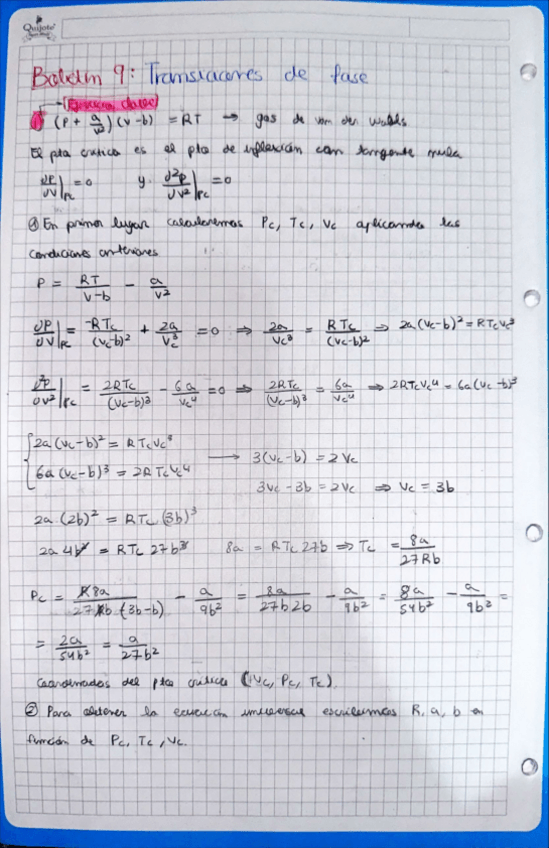 Quijote
Boletín 9: Transiciones de fase
Ejercicio clase
1 (P + a/v²)(v-b) = RT → gas de van der Waals
El pto crítico es el pto de inflexión con tangente nula
∂P/∂V|PC = 0 y ∂²P/∂V²|PC = 0
① En primer lugar calcularemos Pc, Tc, Vc aplicando las
condiciones anteriores
P = RT/(V-b) - a/V²
∂P/∂V|PC = -RTc/(Vc-b)² + 2a/Vc³ = 0 ⇒ 2a/Vc³ = RTc/(Vc-b)² ⇒ 2a(Vc-b)² = RTcVc³
∂²P/∂V²|PC = 2RTc/(Vc-b)³ - 6a/Vc⁴ = 0 ⇒ 2RTc/(Vc-b)³ = 6a/Vc⁴ ⇒ 2RTcVc⁴ = 6a(Vc-b)³
2a(Vc-b)² = RTcVc³ → 3(Vc-b) = 2Vc
6a(Vc-b)³ = 2RTcVc⁴ 3Vc-3b = 2Vc ⇒ Vc = 3b
2a(2b)² = RTc(3b)³
2a4b² = RTc27b³ 8a = RTc27b ⇒ Tc = 8a/27Rb
Pc = R8a/27Rb(3b-b) - a/9b² = 8a/27b2b - a/9b² = 8a/54b² - a/9b² =
= 2a/54b² = a/27b²
Coordenadas del pto crítico (Vc, Pc, Tc)
② Para obtener la ecuación universal escribimos R, a, b en
función de Pc, Tc, Vc.